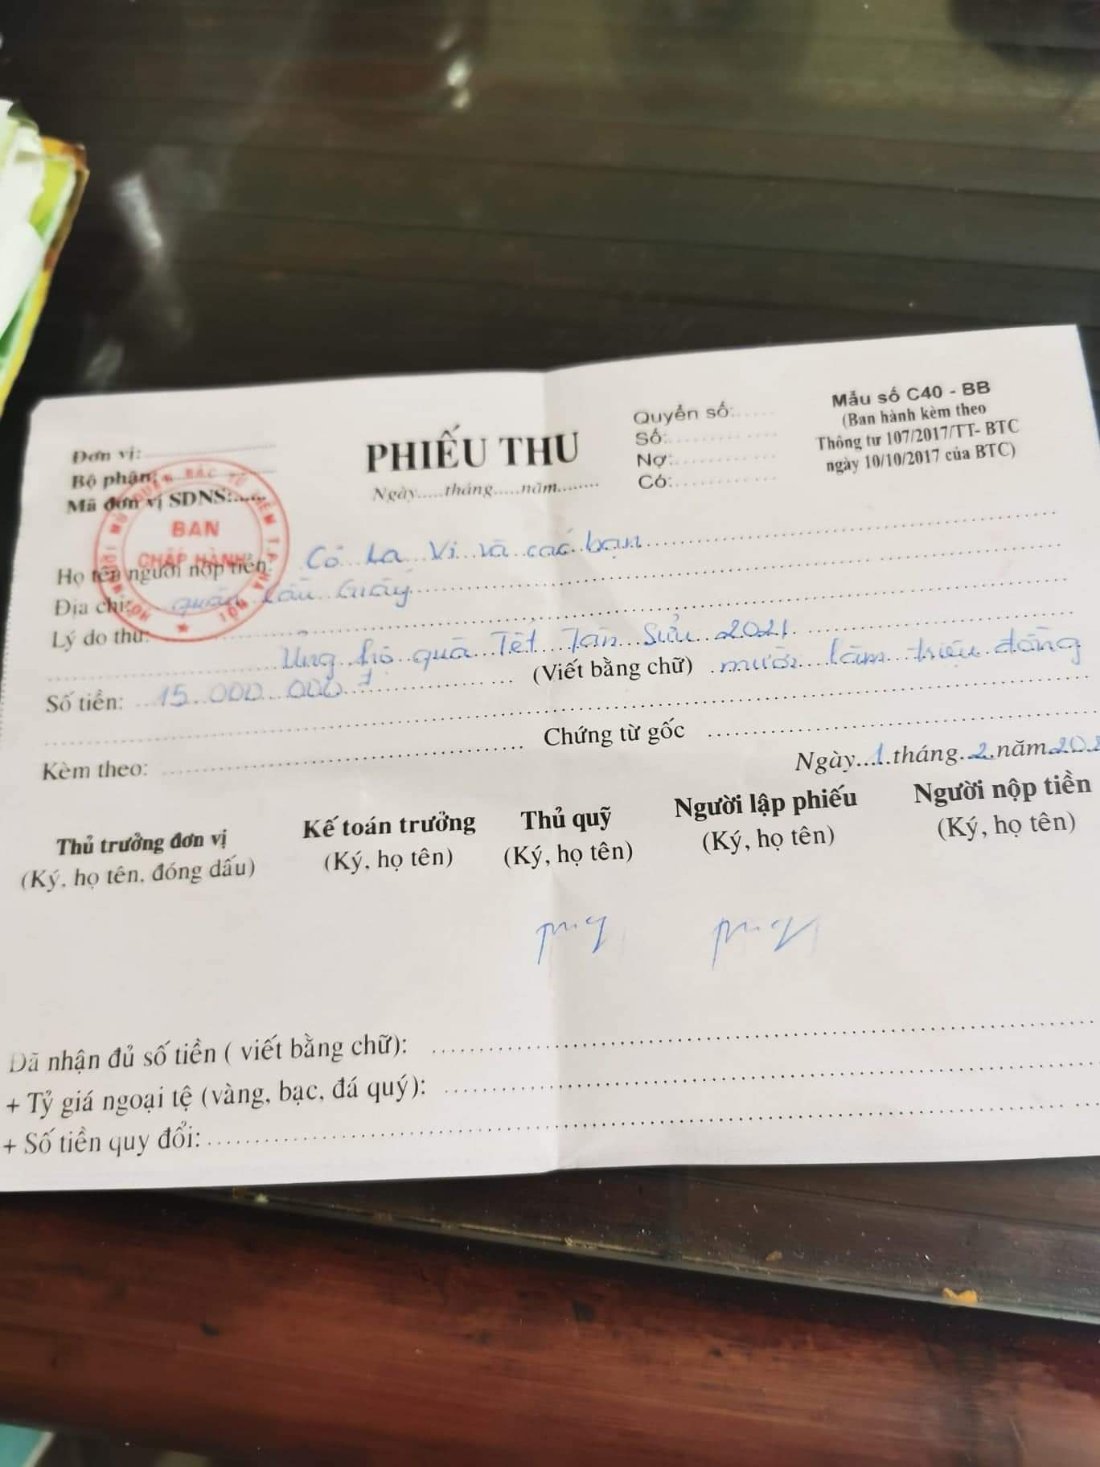 Đơn vị:
Bộ phận:
Mã đơn vị SDNS:
PHIẾU THU
Ngày.....tháng.....năm........
Quyển số:
Số:
Nợ:
Có:
Mẫu số C40 - BB
(Ban hành kèm theo
Thông tư 107/2017/TT- BTC
ngày 10/10/2017 của BTC)
HỘI NGƯỜI MÙ QUẬN BẮC TỪ LIÊM T.P HÀ NỘI
BAN
CHẤP HÀNH
Họ tên người nộp tiền: Cô La Vi và các bạn
Địa chỉ: quận Cầu Giấy
Lý do thu:
Ủng hộ quà Tết Tân Sửu 2021
Số tiền: 15.000.000đ (Viết bằng chữ) mười lăm triệu đồng
Kèm theo: Chứng từ gốc
Ngày 1 tháng 2 năm 202
Thủ trưởng đơn vị Kế toán trưởng Thủ quỹ Người lập phiếu Người nộp tiền
(Ký, họ tên, đóng dấu) (Ký, họ tên) (Ký, họ tên) (Ký, họ tên) (Ký, họ tên)
Đã nhận đủ số tiền ( viết bằng chữ):
+ Tỷ giá ngoại tệ (vàng, bạc, đá quý):
+ Số tiền quy đổi: